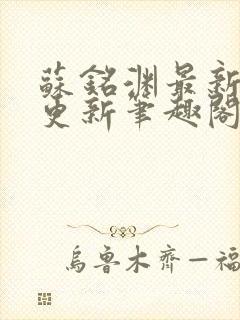 蘇銘淵最新
更新筆趣閣
烏魯木齊—福